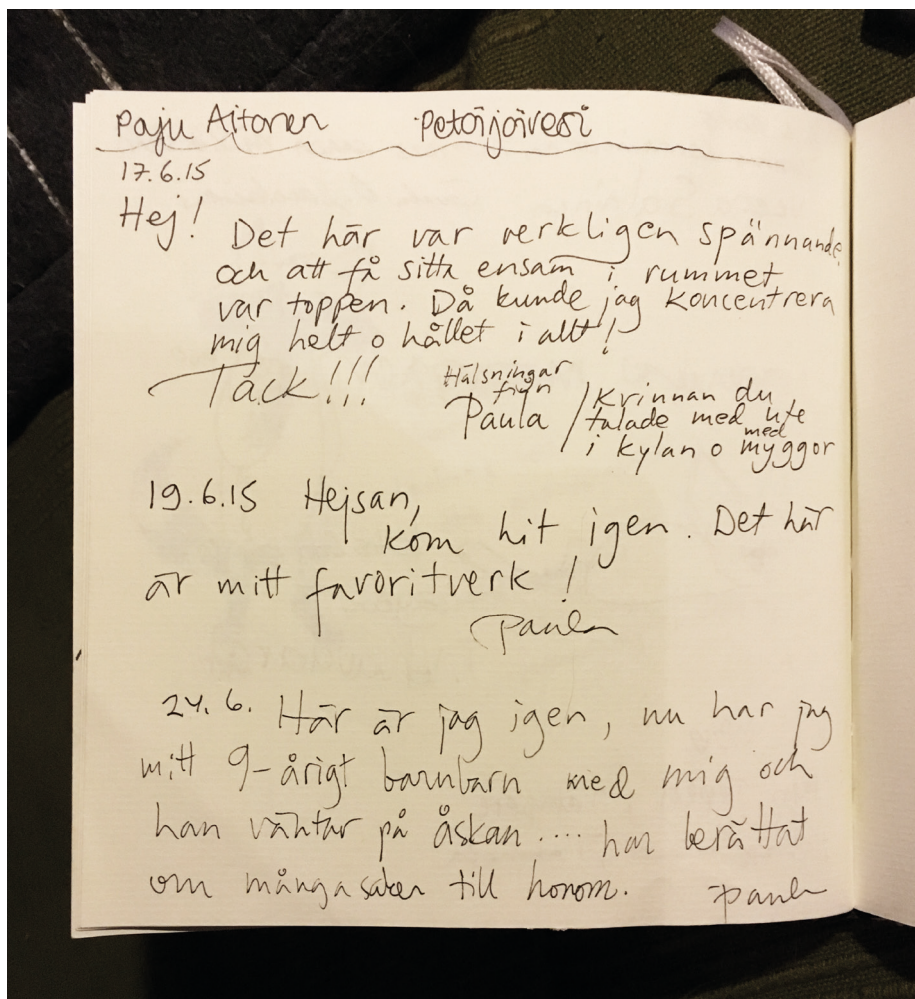 Paju Aitonen Petäjävesi
17.6.15
Hej!
Det här var verkligen spännande
och att få sitta ensam i rummet
var toppen. Då kunde jag koncentrera
mig helt o hållet i allt!
Tack!!!
Hälsningar
från
Paula / Kvinnan du
talade med ute
i kylan o med myggor
19.6.15 Hejsan,
kom hit igen. Det här
är mitt favoritverk!
Paula
24.6. Här är jag igen, nu har jag
mitt 9-årigt barnbarn med mig och
han väntar på åskan.... har berättat
om många saker till honom. Paula